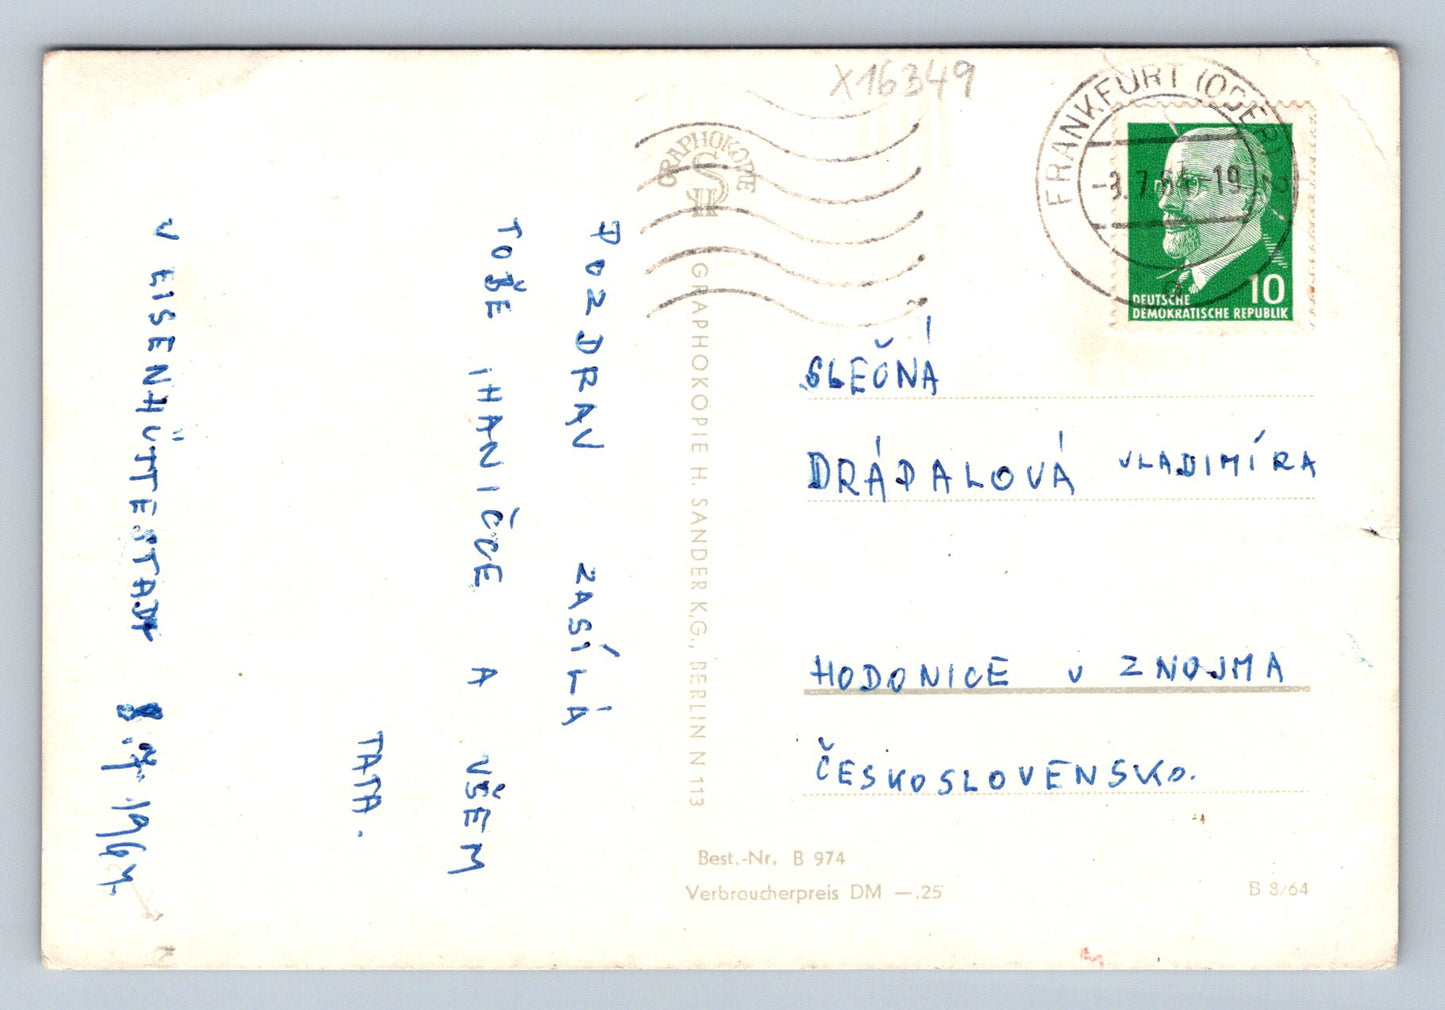 X16349
GRAPHOKOPIE
SH
FRANKFURT (ODER) 2
-3.7.64-19
10
DEUTSCHE
DEMOKRATISCHE REPUBLIK
POZDRAV ZASÍLÁ
TOBE iHANIČCE A VŠEM
TATA.
V EISENHÜTTESTADT 8.7.1964.
GRAPHOKOPIE H. SANDER K.G., BERLIN N 113
SLEČNÁ
DRÁPALOVÁ VLADIMÍRA
HODONICE U ZNOJMA
ČESKOSLOVENSKO.
Best.-Nr. B 974
Verbraucherpreis DM —.25
B 8/64